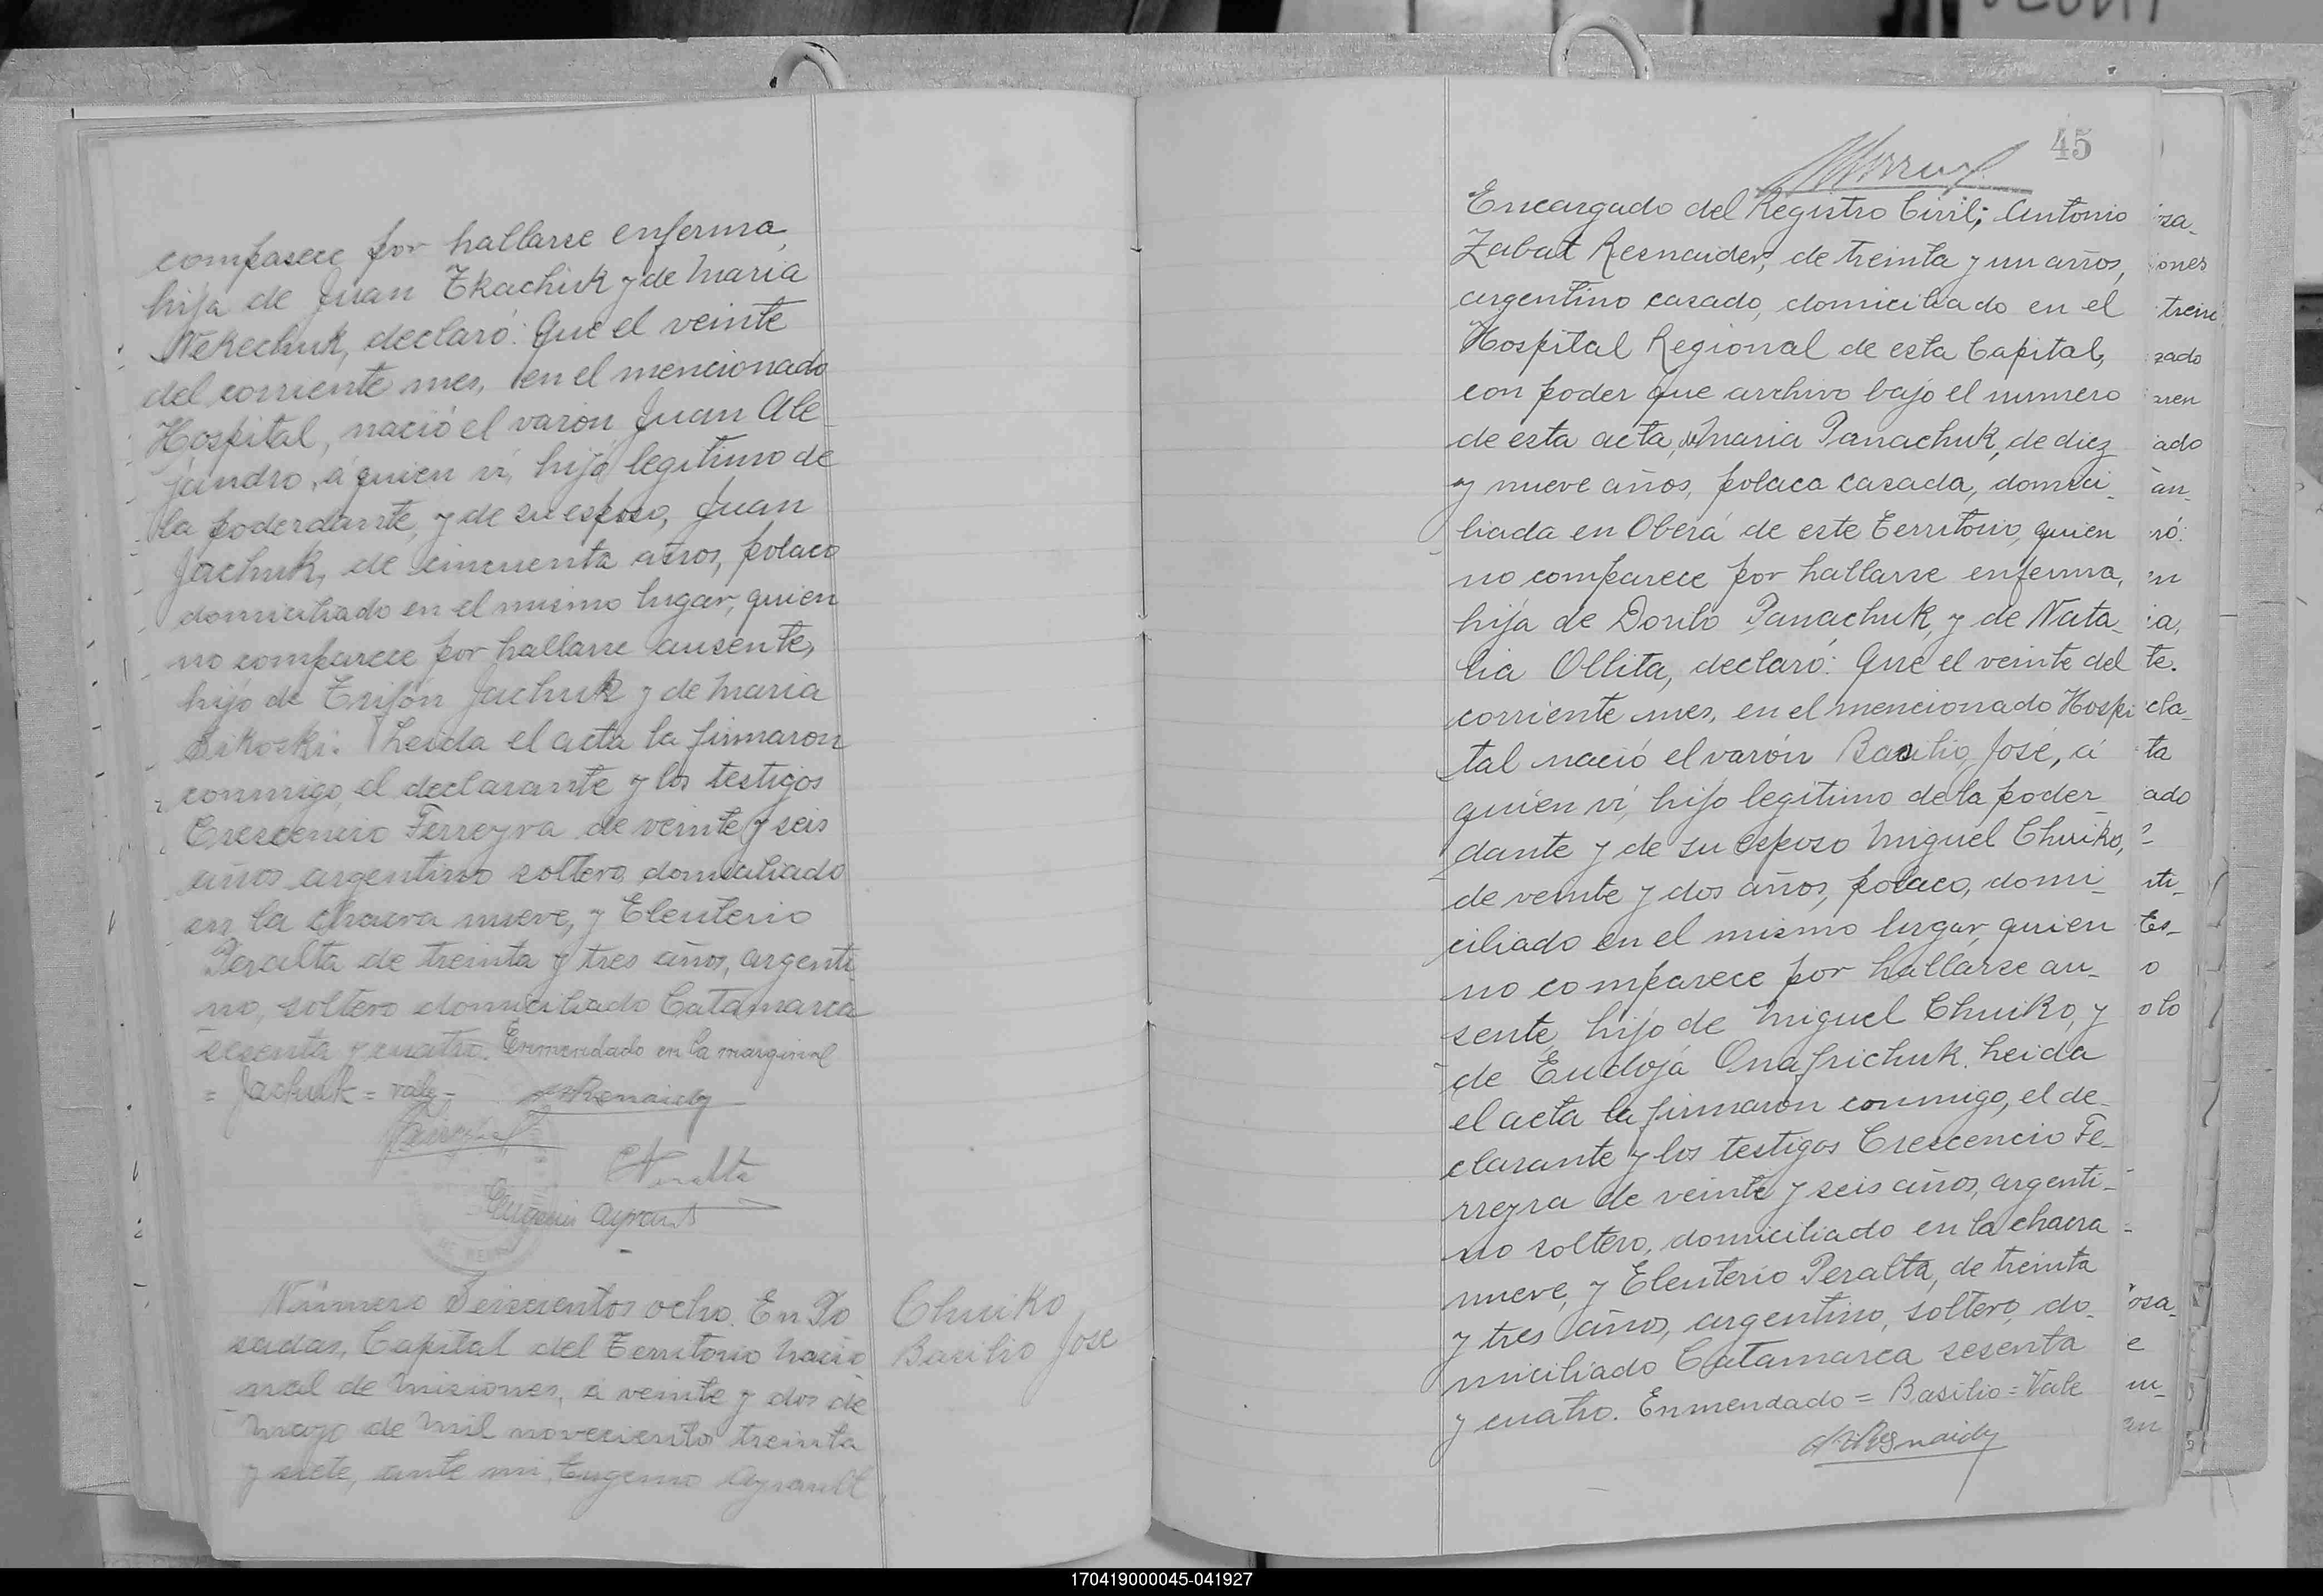 comparece por hallarse enferma,
hija de Juan Tkachuk y de Maria
Nekechuk, declaró: Que el veinte
del corriente mes, en el mencionado
Hospital, nació el varón Juan Ale-
jandro, á quien ví, hijo legítimo de
la poderdante, y de su esposo, Juan
Jachuk, de cincuenta años, polaco
domiciliado en el mismo lugar, quien
no comparece por hallarse ausente,
hijo de Trifón Jachuk y de Maria
Leida el acta la firmaron
conmigo, el declarante y los testigos
Crescencio Ferreyra de veinte y seis
años argentino soltero domiciliado
en la chacra nueve, y Eleuterio
Peralta de treinta y tres años, argenti
no, soltero domiciliado Catamarca
sesenta y cuatro. Enmendado en la marginal
= Jachuk = vale =
Peralta
Eugenio Ayrault
Número Seiscientos ocho. En Po
sadas, Capital del Territorio Nacio
nal de Misiones, á veinte y dos de
Mayo de mil novecientos treinta
y siete, ante mi, Eugenio Ayrault
Chuiko
Basilio José
45
Encargado del Registro Civil; Antonio
Zabat Resnaider, de treinta y un años,
argentino casado, domiciliado en el
Hospital Regional de esta Capital,
con poder que archivo bajo el numero
de esta acta, de Maria Panachuk, de diez
y nueve años, polaca casada, domici-
liada en Oberá de este Territorio, quien
no comparece por hallarse enferma,
hija de Donilo Panachuk, y de Nata-
lia Ollita, declaró: Que el veinte del
corriente mes, en el mencionado Hospi
tal nació el varón Basilio José, á
quien ví, hijo legítimo de la poder-
dante y de su esposo Miguel Chuiko,
de veinte y dos años, polaco, domi-
ciliado en el mismo lugar, quien
no comparece por hallarse au-
sente, hijo de Miguel Chuiko, y
de Eudoja Onafrichuk. Leida
el acta la firmaron conmigo, el de-
clarante y los testigos Crescencio Fe-
rreyra de veinte y seis años, argenti-
no soltero, domiciliado en la chacra
nueve, y Eleuterio Peralta, de treinta
y tres años, argentino, soltero, do-
miciliado Catamarca sesenta
y cuatro. Enmendado = Basilio = Vale
170419000045-041927